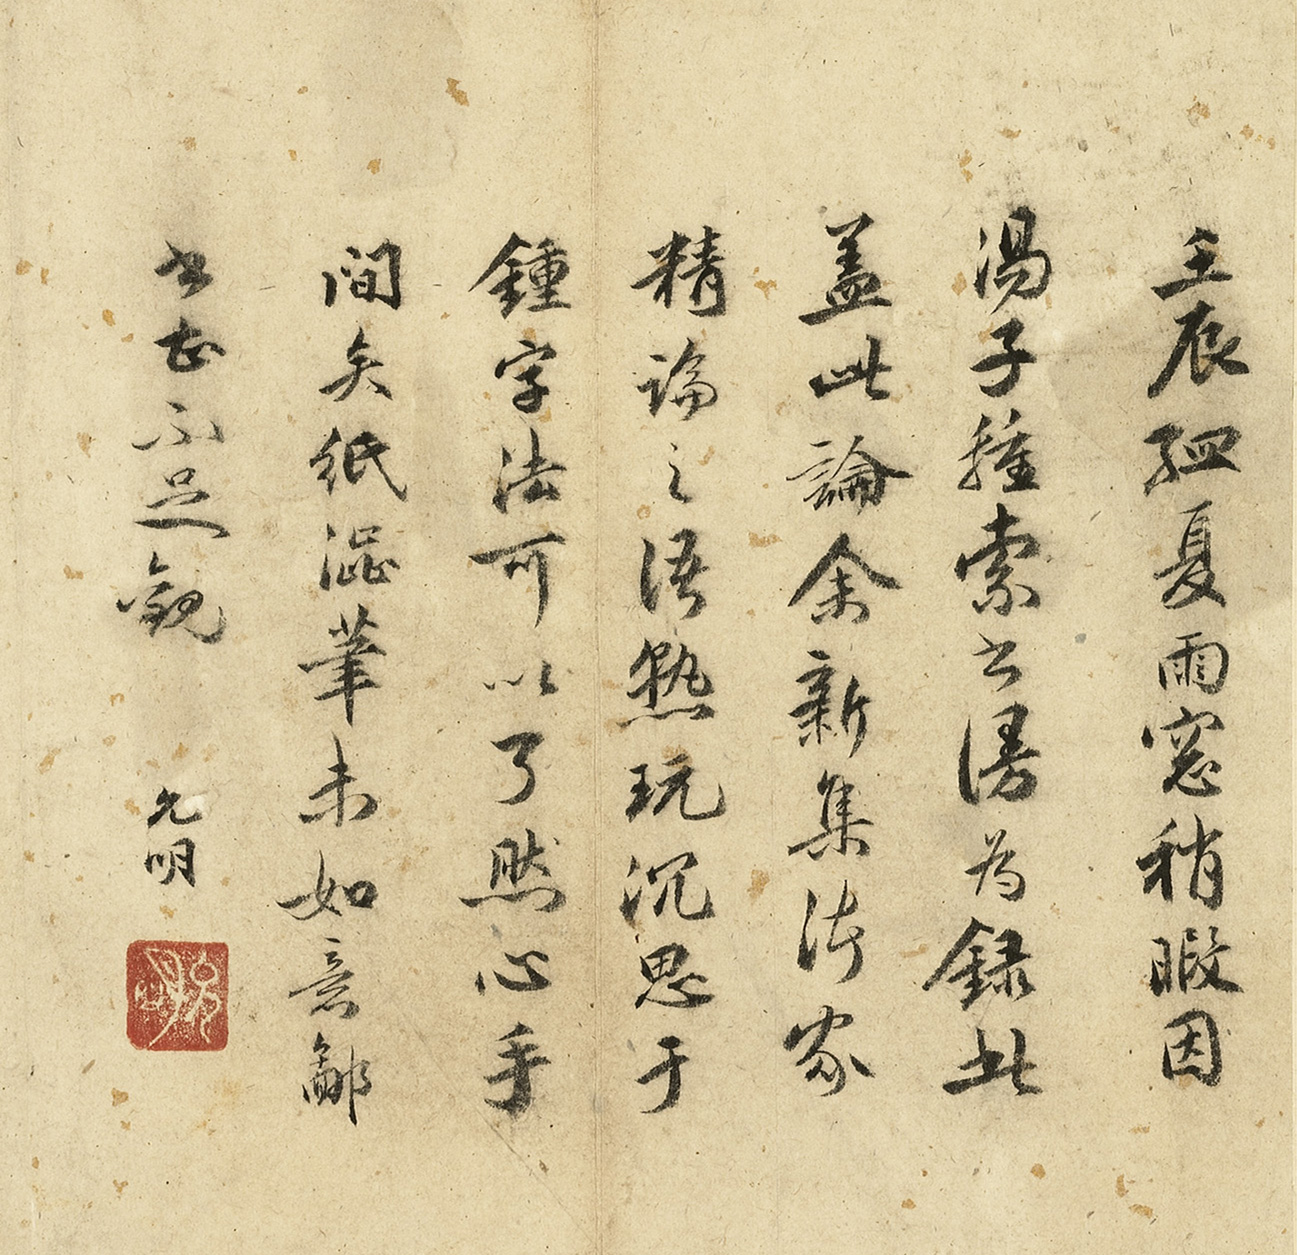 壬辰孟夏雨窓稍暇因
湯子種索書漫為録此
盖此論余新集諸家
精論之語熟玩沉思于
鍾字法可以了然心手
間矣紙澀筆未如意鄙
書甚不足觀 允明